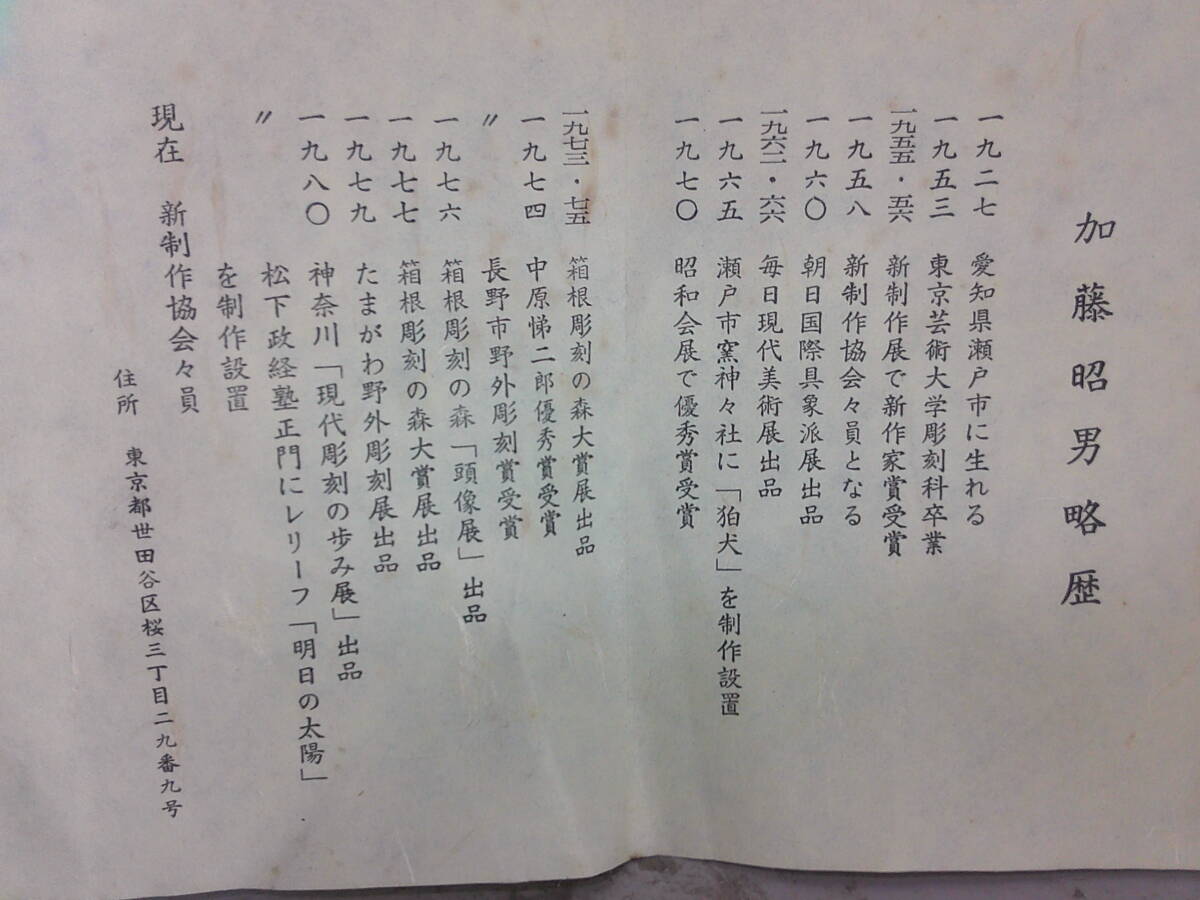 加藤昭男略歴
一九二七 愛知県瀬戸市に生れる
一九五三 東京芸術大学彫刻科卒業
一九五五・五六 新制作展で新作家賞受賞
一九五八 新制作協会々員となる
一九六〇 朝日国際具象派展出品
一九六二・六六 毎日現代美術展出品
一九六五 瀬戸市窯神々社に「狛犬」を制作設置
一九七〇 昭和会展で優秀賞受賞
一九七三・七五 箱根彫刻の森大賞展出品
一九七四 中原悌二郎優秀賞受賞
〃 長野市野外彫刻賞受賞
一九七六 箱根彫刻の森「頭像展」出品
一九七七 箱根彫刻の森大賞展出品
一九七九 たまがわ野外彫刻展出品
一九八〇 神奈川「現代彫刻の歩み展」出品
〃 松下政経塾正門にレリーフ「明日の太陽」
を制作設置
現在 新制作協会々員
住所 東京都世田谷区桜三丁目二九番九号